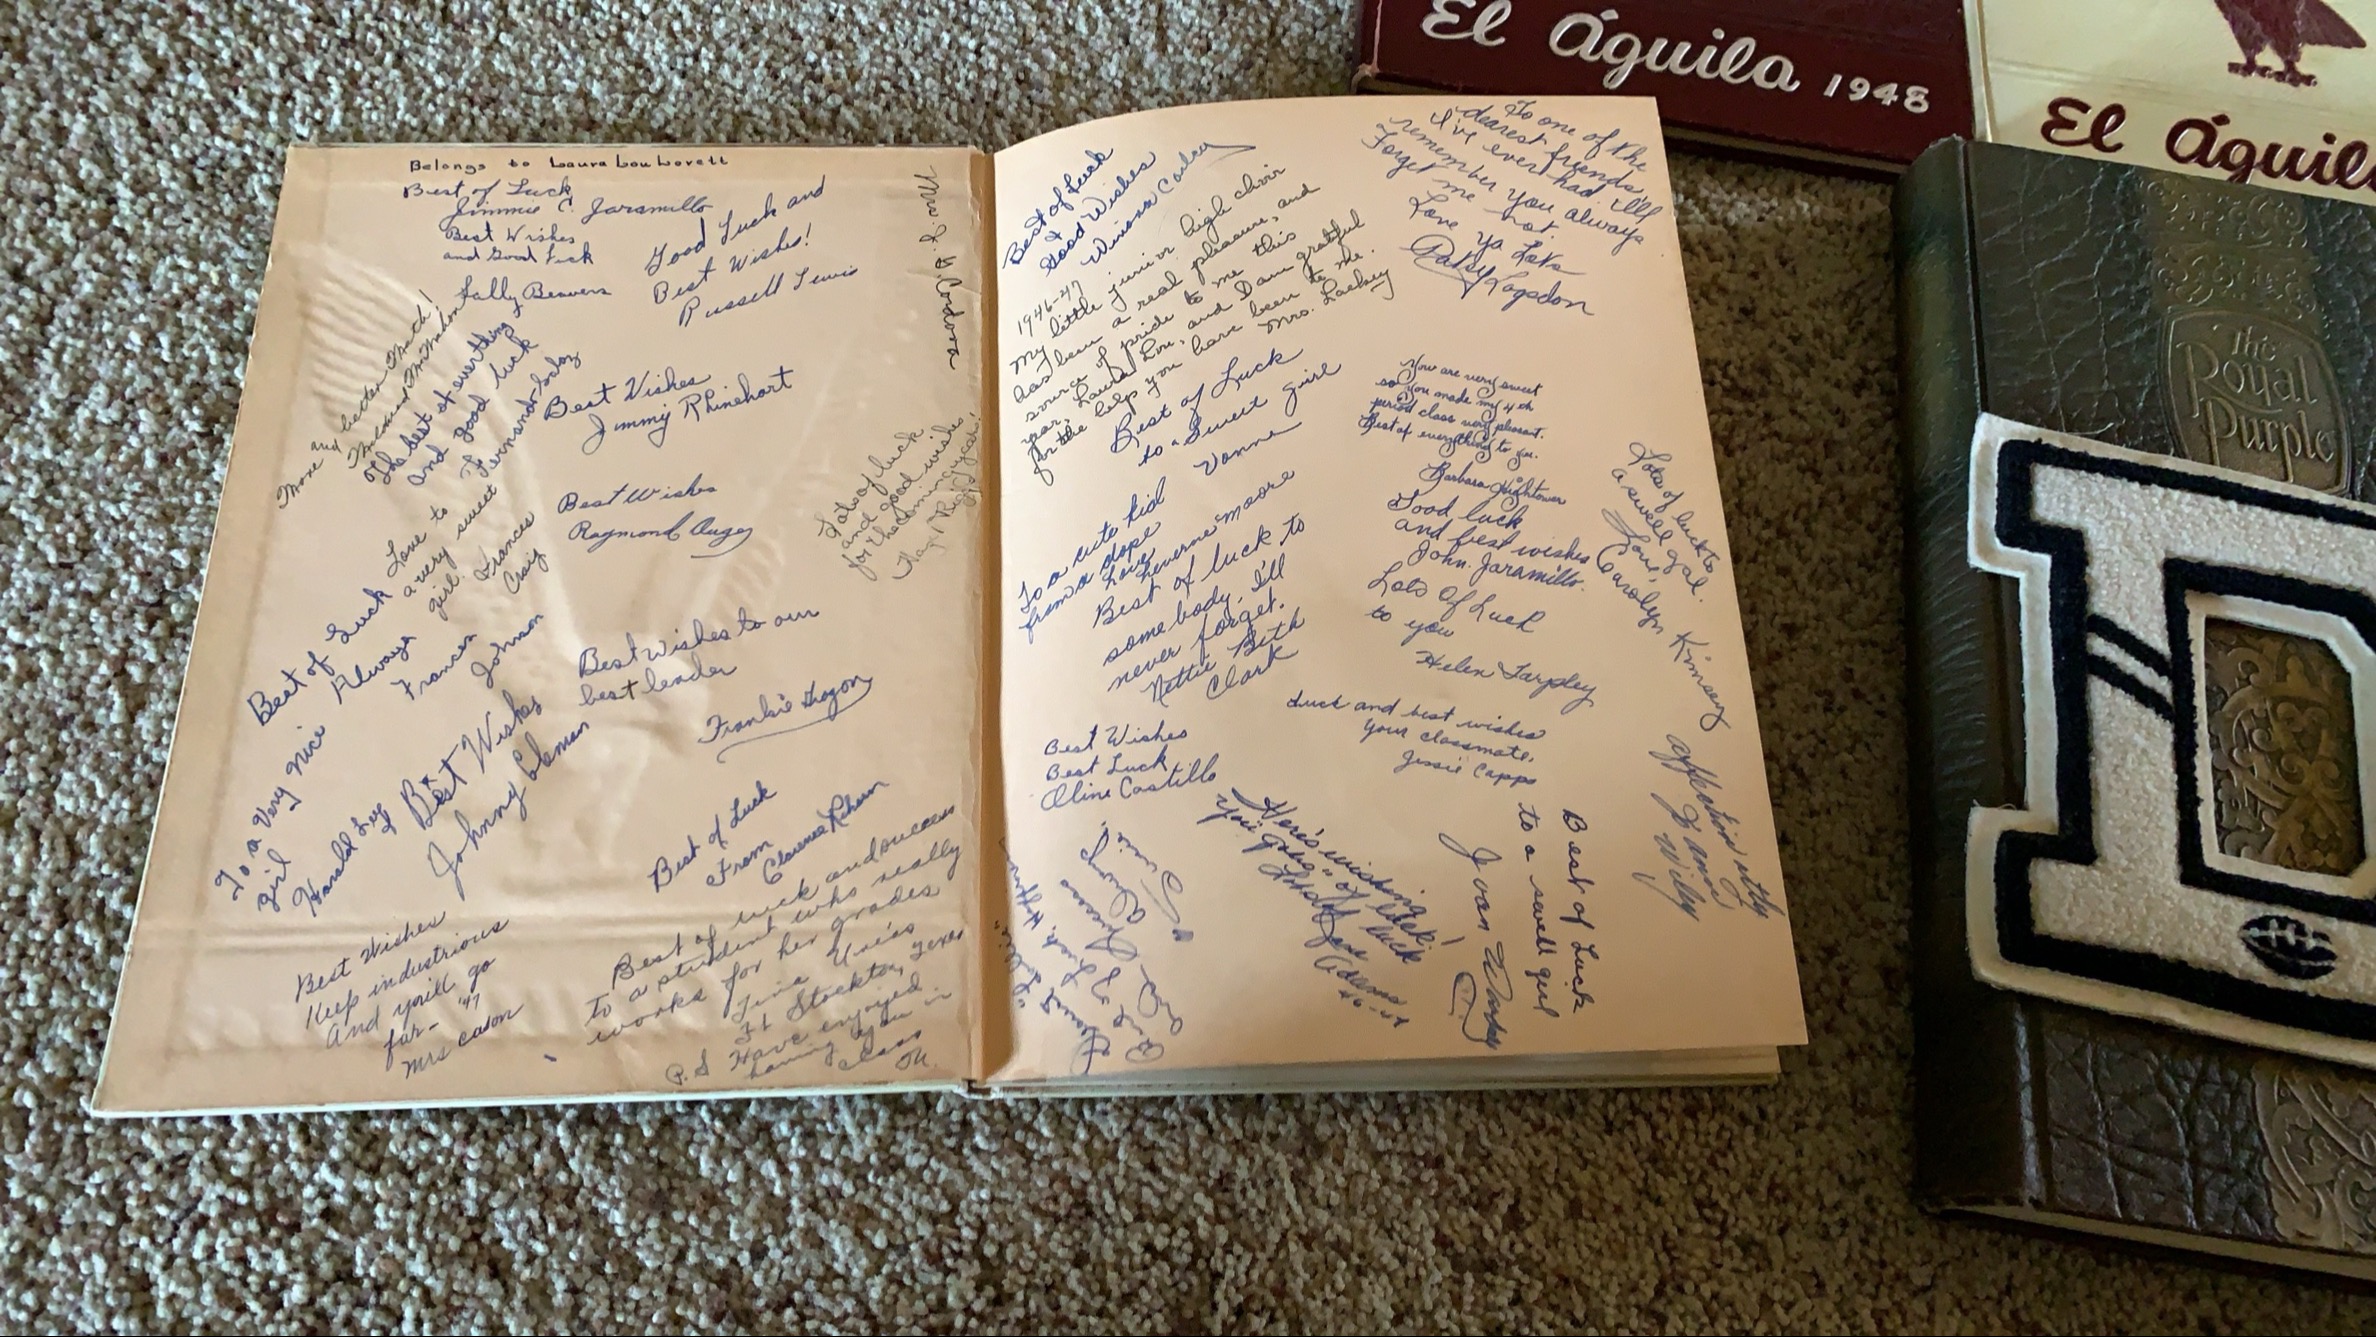 Belongs to Laura Lou Lovett
Best of Luck
Jimmie C. Jaramillo
Best Wishes
and Good Luck
Beavers
Good Luck and
Best Wishes!
Russell Lewis
Mrs. L. R. Cordova
More and better Math!
The best of everything
and good luck
Best Wishes
Jimmy Rhinehart
Best Wishes
Raymond
Lots of luck
and good wishes
for the coming years!
Love to
a very sweet
girl.
Frances
Craig
Best of Luck
Always
Johnson
Best Wishes to our
best leader
Frankie
To a very nice
girl
Harold
Best Wishes
Johnny
Best of Luck
From
Clarence
Best Wishes
Keep industrious
And you'll go
far - '47
Mrs Cason
Best of luck and success
to a student who really
works for her grades
Ft Stockton, Texas
P.S Have enjoyed
having you in
class
Best of Luck
&
Good Wishes
Winona
1946-47
My little junior high choir
has been a real pleasure, and
source of pride to me this
year, Laura Lou, and I am grateful
for the help you have been to me.
Mrs. Lackey
Best of Luck
to a Sweet girl
Vonne
To a cute kid
from a dope
Love
Laverne Moore
Best of luck to
some body, I'll
never forget.
Nettie Beth
Clark
Best Wishes
Best Luck
Oline Castillo
To one of the
dearest friends
I've ever had I'll
remember you always
Forget me not.
Love ya Lots
Patsy Logsdon
You are very sweet
so you made my 4th
period class very pleasant.
Best of everything to you.
Barbara Hightower
Good luck
and best wishes
John. Jaramillo.
Lots Of Luck
to you
Helen Tarpley
Luck and best wishes
your classmate,
Jessie Capps
Lots of luck to
a swell gal.
Love,
Carolyn Kimsey
Wiley
Best of Luck
to a swell girl
Joan
Here's wishing
you
of luck
Adams
El Águila 1948
El Águil
The
Royal
Purple
D